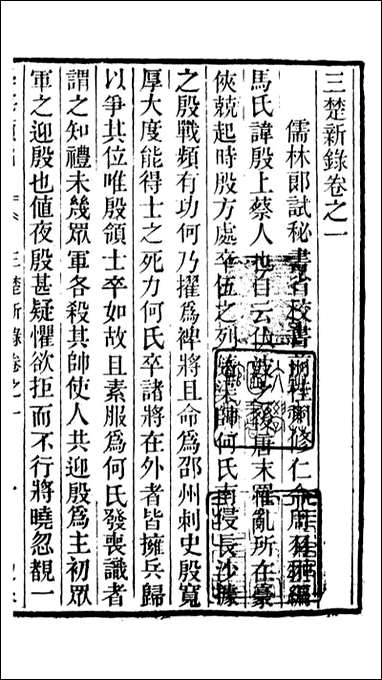 三楚新錄卷之一
儒林郎試秘書省校書郎 修仁令周羽翀編
馬氏諱殷上蔡人也自云伏波之後唐末罹亂所在豪
俠競起時殷方處卒伍之列 渠帥何氏南侵長沙據
之殷戰頻有功何乃擢為裨將且命為邵州刺史殷寬
厚大度能得士之死力何氏卒諸將在外者皆擁兵歸
以爭其位唯殷領士卒如故且素服為何氏發喪識者
謂之知禮未幾眾軍各殺其帥使人共迎殷為主初眾
軍之迎殷也値夜殷甚疑懼欲拒而不行將曉忽覩一
三楚新錄卷之一